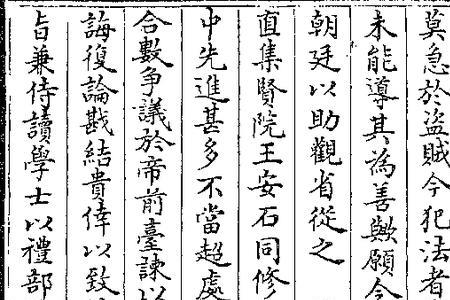 莫急於盜賊今犯法者
未能導其為善歟願今
朝廷以助觀省從之
直集賢院王安石同修
中先進甚多不當超處
合數爭議於帝前臺諫以
誨復論戡結貴倖以致
旨兼侍讀學士以禮部